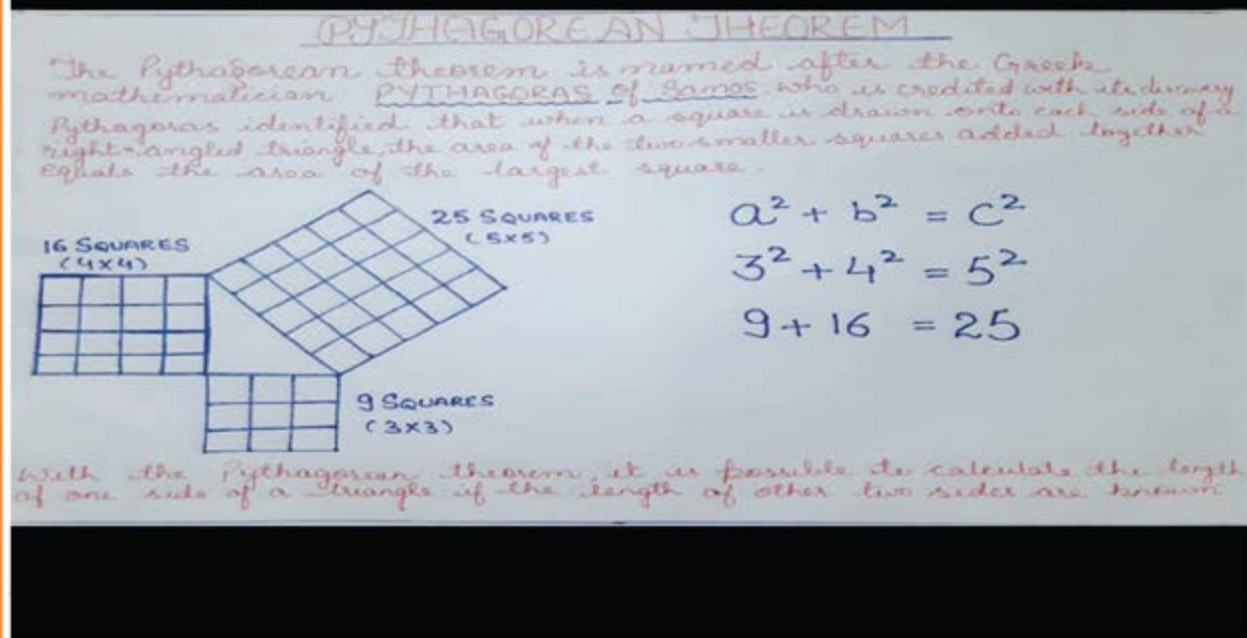 PYTHAGOREAN THEOREM
The Pythagorean theorem is named after the Greek
mathematician PYTHAGORAS of Samos, who is credited with its discovery
Pythagoras identified that when a square is drawn onto each side of a
right-angled triangle, the area of the two smaller squares added together
equals the area of the largest square.
25 SQUARES
(5×5)
16 SQUARES
(4×4)
9 SQUARES
(3×3)
a² + b² = c²
3² + 4² = 5²
9 + 16 = 25
With the Pythagorean theorem, it is possible to calculate the length
of one side of a triangle if the length of other two sides are known